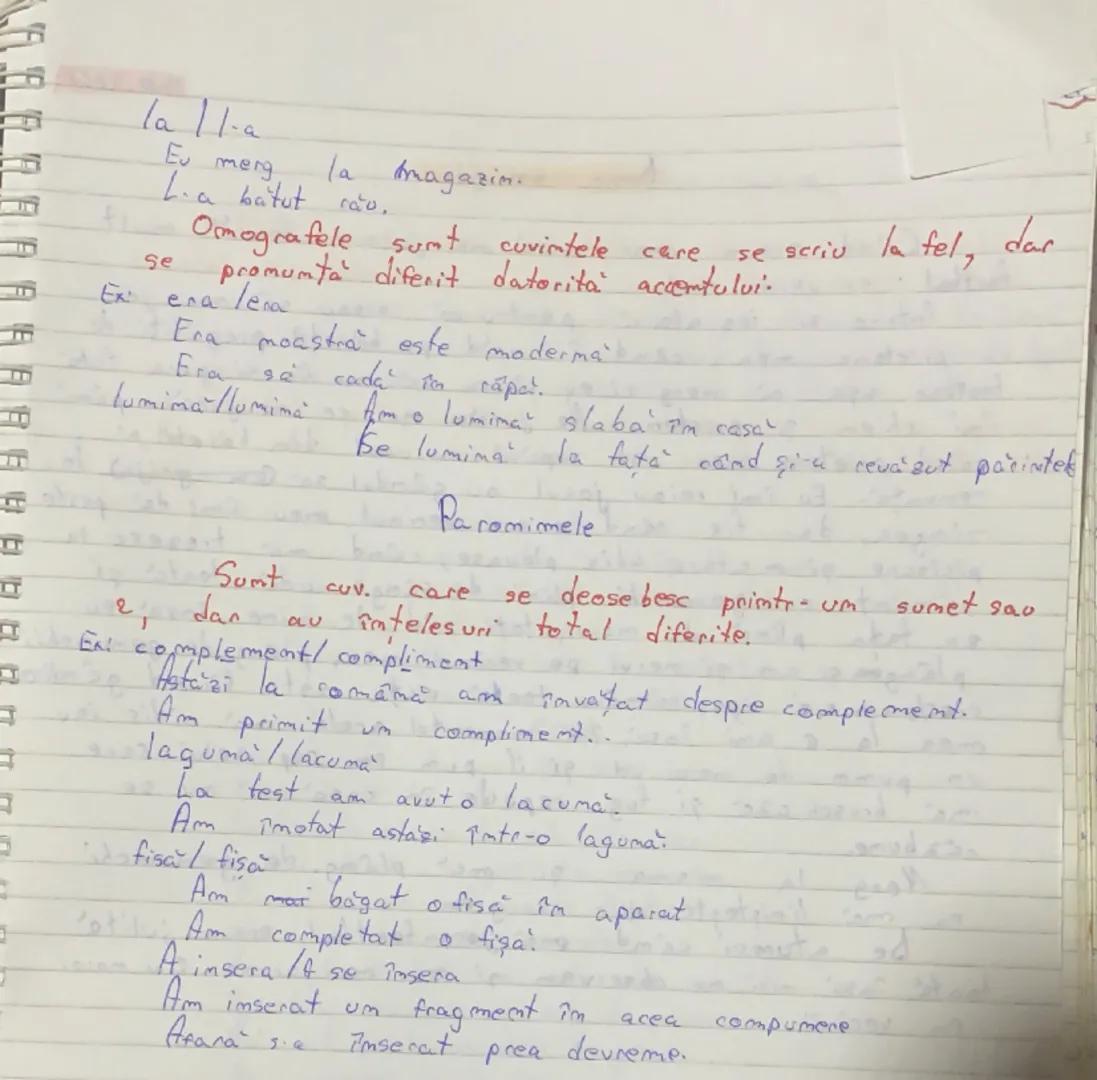 la / l-a
Eu merg la magazin.
L-a bătut rău.
Omografele sunt cuvintele care se scriu la fel, dar
se pronunță diferit datorită accentului.
Ex: era/era
Era noastră este modernă
Era să cadă în râpă.
lumină/lumină Am o lumină slabă în casă
Se lumină la față când și-a revăzut părinte
Paronimele
Sunt cuv. care se deosebesc printr-un sunet sau
2, dar au înțelesuri total diferite.
Ex: complement/ compliment
Astăzi la română am învățat despre complement.
Am primit un compliment..
lagună/lacună
La test am avut o lacună.
Am înotat astăzi într-o lagună.
fisă/ fișă
Am băgat o fisă în aparat
Am completat o fișă.
A insera /A se însera
Am inserat un fragment în acea compunere
Afară s-a înserat prea devreme.